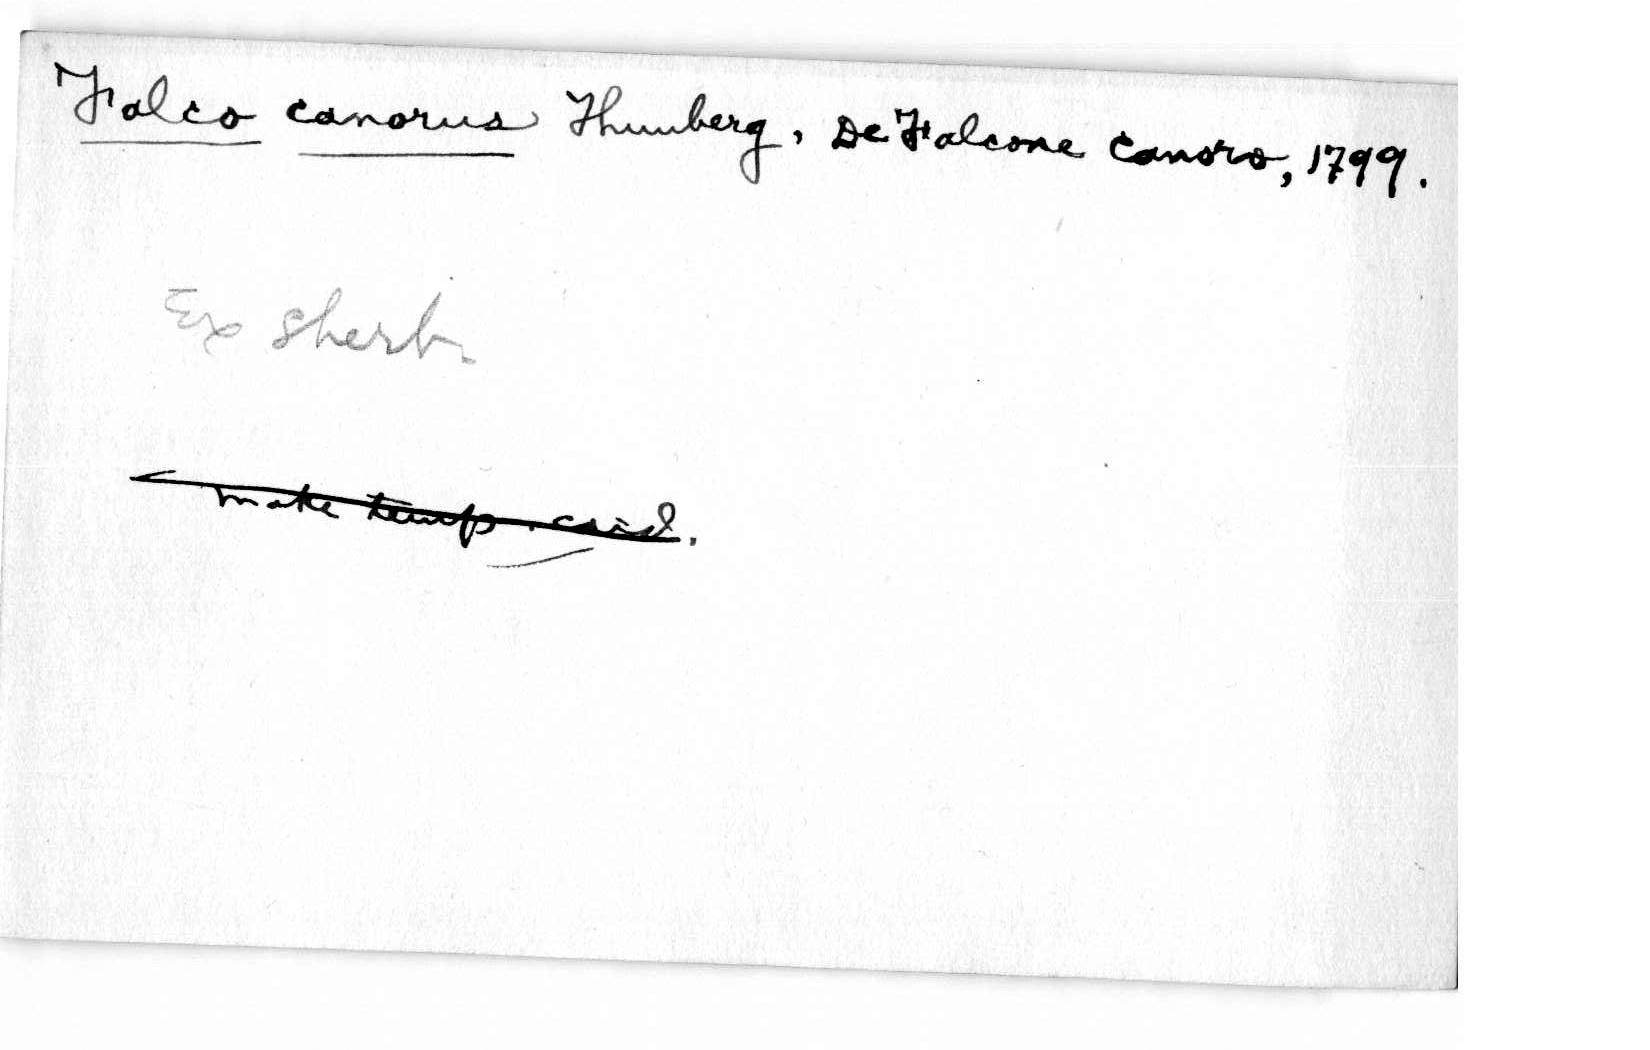 Falco canorus Thunberg, De Falcone canoro, 1799.
Ex Sherb.
make temp. card.